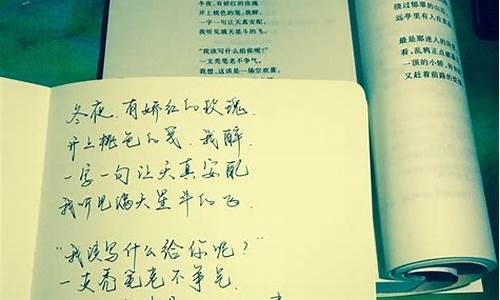 冬夜，有娇红的玫瑰
开上桃色的笺，我醉，
一字一句让天真安配
我听见满天星斗的飞
“我该写什么给你呢？”
一支秃笔老不争气，
冬夜，有娇红的玫瑰
开上桃色的笺，我醉，
一字一句让天真安配，
我听见满天星斗的飞。
“我该写什么给你呢？”
一支秃笔老不争气，
我想，这该是一场空欢喜，
绕过郁翠的
远亭里有人在
最是那迷人的
看，乱鸦正
一顶的小轿，
又赶着前路的